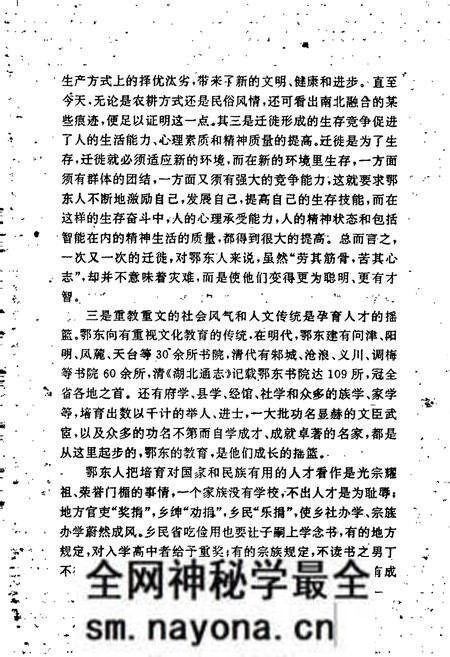 生产方式上的择优汰劣,带来了新的文明、健康和进步。直至
今天、无论是农耕方式还是民俗风情,还可看出南北融合的某
些痕迹,便足以证明这一点。其三是迁徙形成的生存竞争促进
了人的生活能力、心理素质和精神质量的提高。迁徙是为了生
存,迁徙就必须适应新的环境,而在新的环境里生存,一方面
须有群体的团结,一方面又须有强大的竞争能力,这就要求鄂
东人不断地激励自己,发展自己,提高自己的生存技能,而在
这样的生存奋斗中,人的心理承受能力,人的精神状态和包括
智能在内的精神生活的质量,都得到很大的提高。总而言之,
一次又一次的迁徙,对鄂东人来说,虽然“劳其筋骨,苦其心
志”,却并不意味着灾难,而是使他们变得更为聪明、更有才
智。
三是重教重文的社会风气和人文传统是孕育人才的摇
篮。鄂东向有重视文化教育的传统,在明代,鄂东建有问津、阳
明、凤麓、天台等30余所书院,清代有邾城、沧浪、义川、调梅
等书院60余所,清《湖北通志》记载鄂东书院达109所,冠全
省各地之首。还有府学、县学、经馆、社学和众多的族学、家学
等,培育出数以千计的举人、进士,一大批功名显赫的文臣武
官,以及众多的功名不第而自学成才、成就卓著的名家,都是
从这里起步的,鄂东的教育,是他们成长的摇篮。
鄂东人把培育对国家和民族有用的人才看作是光宗耀
祖、荣誉门楣的事情,一个家族没有学校,不出人才是为耻辱;
地方官吏“奖捐”,乡绅“劝捐”,乡民“乐捐”,使乡社办学、宗族
办学蔚然成风。乡民省吃俭用也要让子嗣上学念书,有的地方
规定,对入学高中者给予重奖;有的宗族规定,不读书之男丁
不
有成
全网神秘学最全
sm.nayona.cn